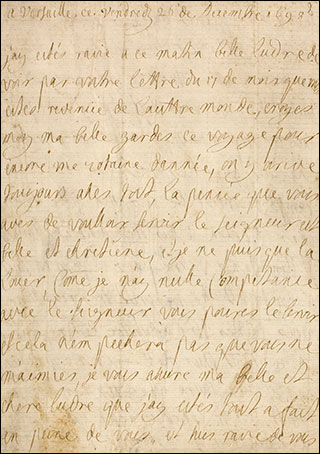 a Versaille, ce Vendredy 26 de Decembre 1698
jay estés ravie a ce matin belle Ludre de
voir par vottre lettre du 17 de mois que
estes revenüe de l'auttre monde, croyes
moy ma belle gardes ce voyage pour
dannée, on y arive
tousjours ases tost, la pensée que vous
aves de voulloir servir le seigneur est
belle et chretiene, et je ne puis que la
louer come je n'ay nulle competance
avec le seigneur vous poures le servir
et cela nempechera pas que vous ne
m'aimies, je vous asure ma belle et
chere Ludre que j'ay estés tout a fait
en peine de vous, et suis ravie de vous